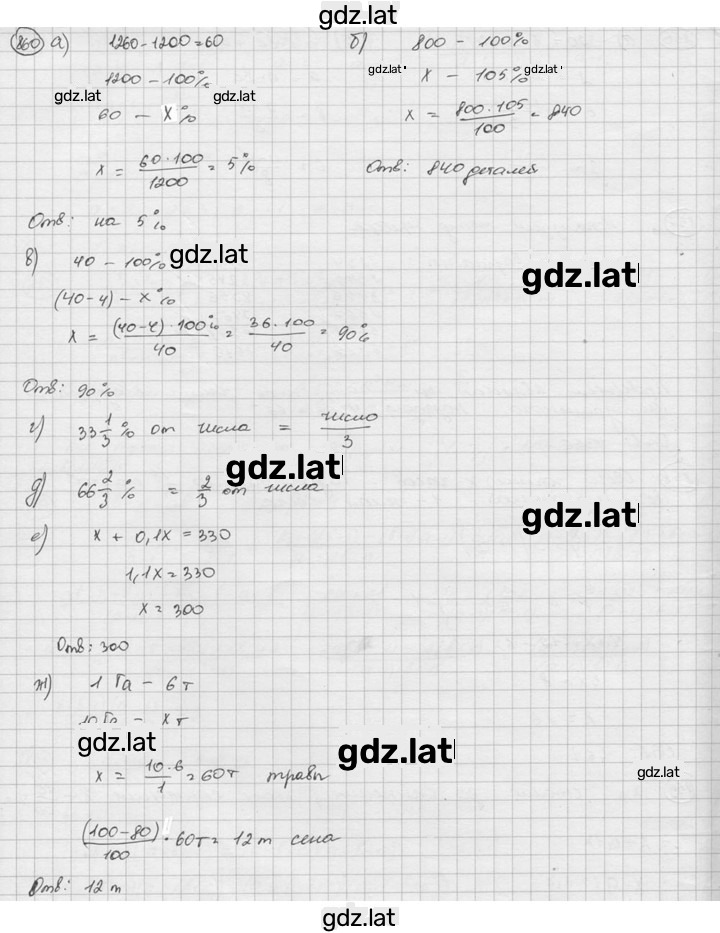 gdz.lat
860 а) 1260-1200=60
1200 - 100%
gdz.lat gdz.lat
60 - x%
x = 60·100/1200 = 5%
Отв: на 5%
б) 800 - 100%
gdz.lat gdz.lat
x - 105%
x = 800·105/100 = 840
Отв: 840 деталей
в) 40 - 100% gdz.lat
gdz.lat
(40-4) - x%
x = (40-4)·100%/40 = 36·100/40 = 90%
Отв: 90%
г) 33 1/3 % от числа = число/3
gdz.lat
д) 66 2/3 % = 2/3 от числа
gdz.lat
е) x + 0,1x = 330
1,1x = 330
x = 300
Отв: 300
ж) 1 Га - 6 т
10 Га - x т
gdz.lat gdz.lat
gdz.lat
x = 10·6/1 = 60т травы
(100-80)/100 · 60т = 12 т сена
Отв: 12 т
gdz.lat